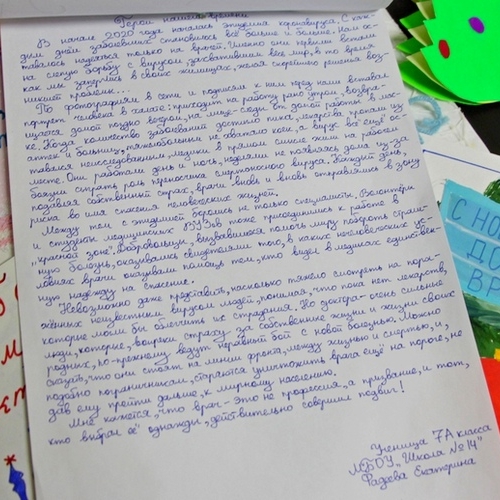 Герои нашего времени
В начале 2020 года началась эпидемия коронавируса. С каж-
дым днём заболевших становилось всё больше и больше. Нам ос-
тавалось надеяться только на врачей. Именно они первыми встали
на смелую борьбу с вирусом, захватившим весь мир, в то время
как мы заперлись в своих жилищах, желая скорейшего решения воз-
никшей проблемы...
По фотографиям в сети и подписям к ним перед нами вставал
портрет человека в халате: приходит на работу рано утром, возвра-
щается домой поздно вечером, на лице - следы от долгой работы в мас-
ке. Когда количество заболеваний достигло пика, лекарства пропали из
аптек и больниц, тяжелобольным не хватало коек, а вирус всё ещё ос-
тавался неисследованным, медики в прямом смысле жили на рабочем
месте. Они работали день и ночь, неделями не появляясь дома из-за
боязни сыграть роль переносчика смертоносного вируса. Каждый день,
подавляя собственный страх, врачи вновь и вновь отправлялись в зону
риска во имя спасения человеческих жизней.
Между тем с эпидемией боролись не только специалисты. Волонтёры
и студенты медицинских ВУЗов тоже присоединились к работе в
"красной зоне". Добровольцы, вызвавшиеся помочь миру побороть страш-
ную болезнь, оказывались свидетелями того, в каких нечеловеческих ус-
ловиях врачи оказывали помощь тем, кто видел в медиках единствен-
ную надежду на спасение.
Невозможно даже представить, насколько тяжело смотреть на пора-
жённых неизвестным вирусом людей, понимая, что пока нет лекарств,
которые могли бы облегчить их страдания. Но доктора - очень сильные
люди, которые, вопреки страху за собственные жизни и жизни своих
родных, по-прежнему ведут неравный бой с новой болезнью. Можно
сказать, что они стоят на линии фронта, между жизнью и смертью, и,
подобно пограничникам, стараются уничтожить врага ещё на пороге, не
дав ему пройти дальше, к мирному населению.
Мне кажется, что врач - это не профессия, а призвание, и тот,
кто выбрал её однажды, действительно совершил подвиг!
Ученица 7А класса
МБОУ "Школа №14"
Фадеева Екатерина
С НО
ДО
ВР